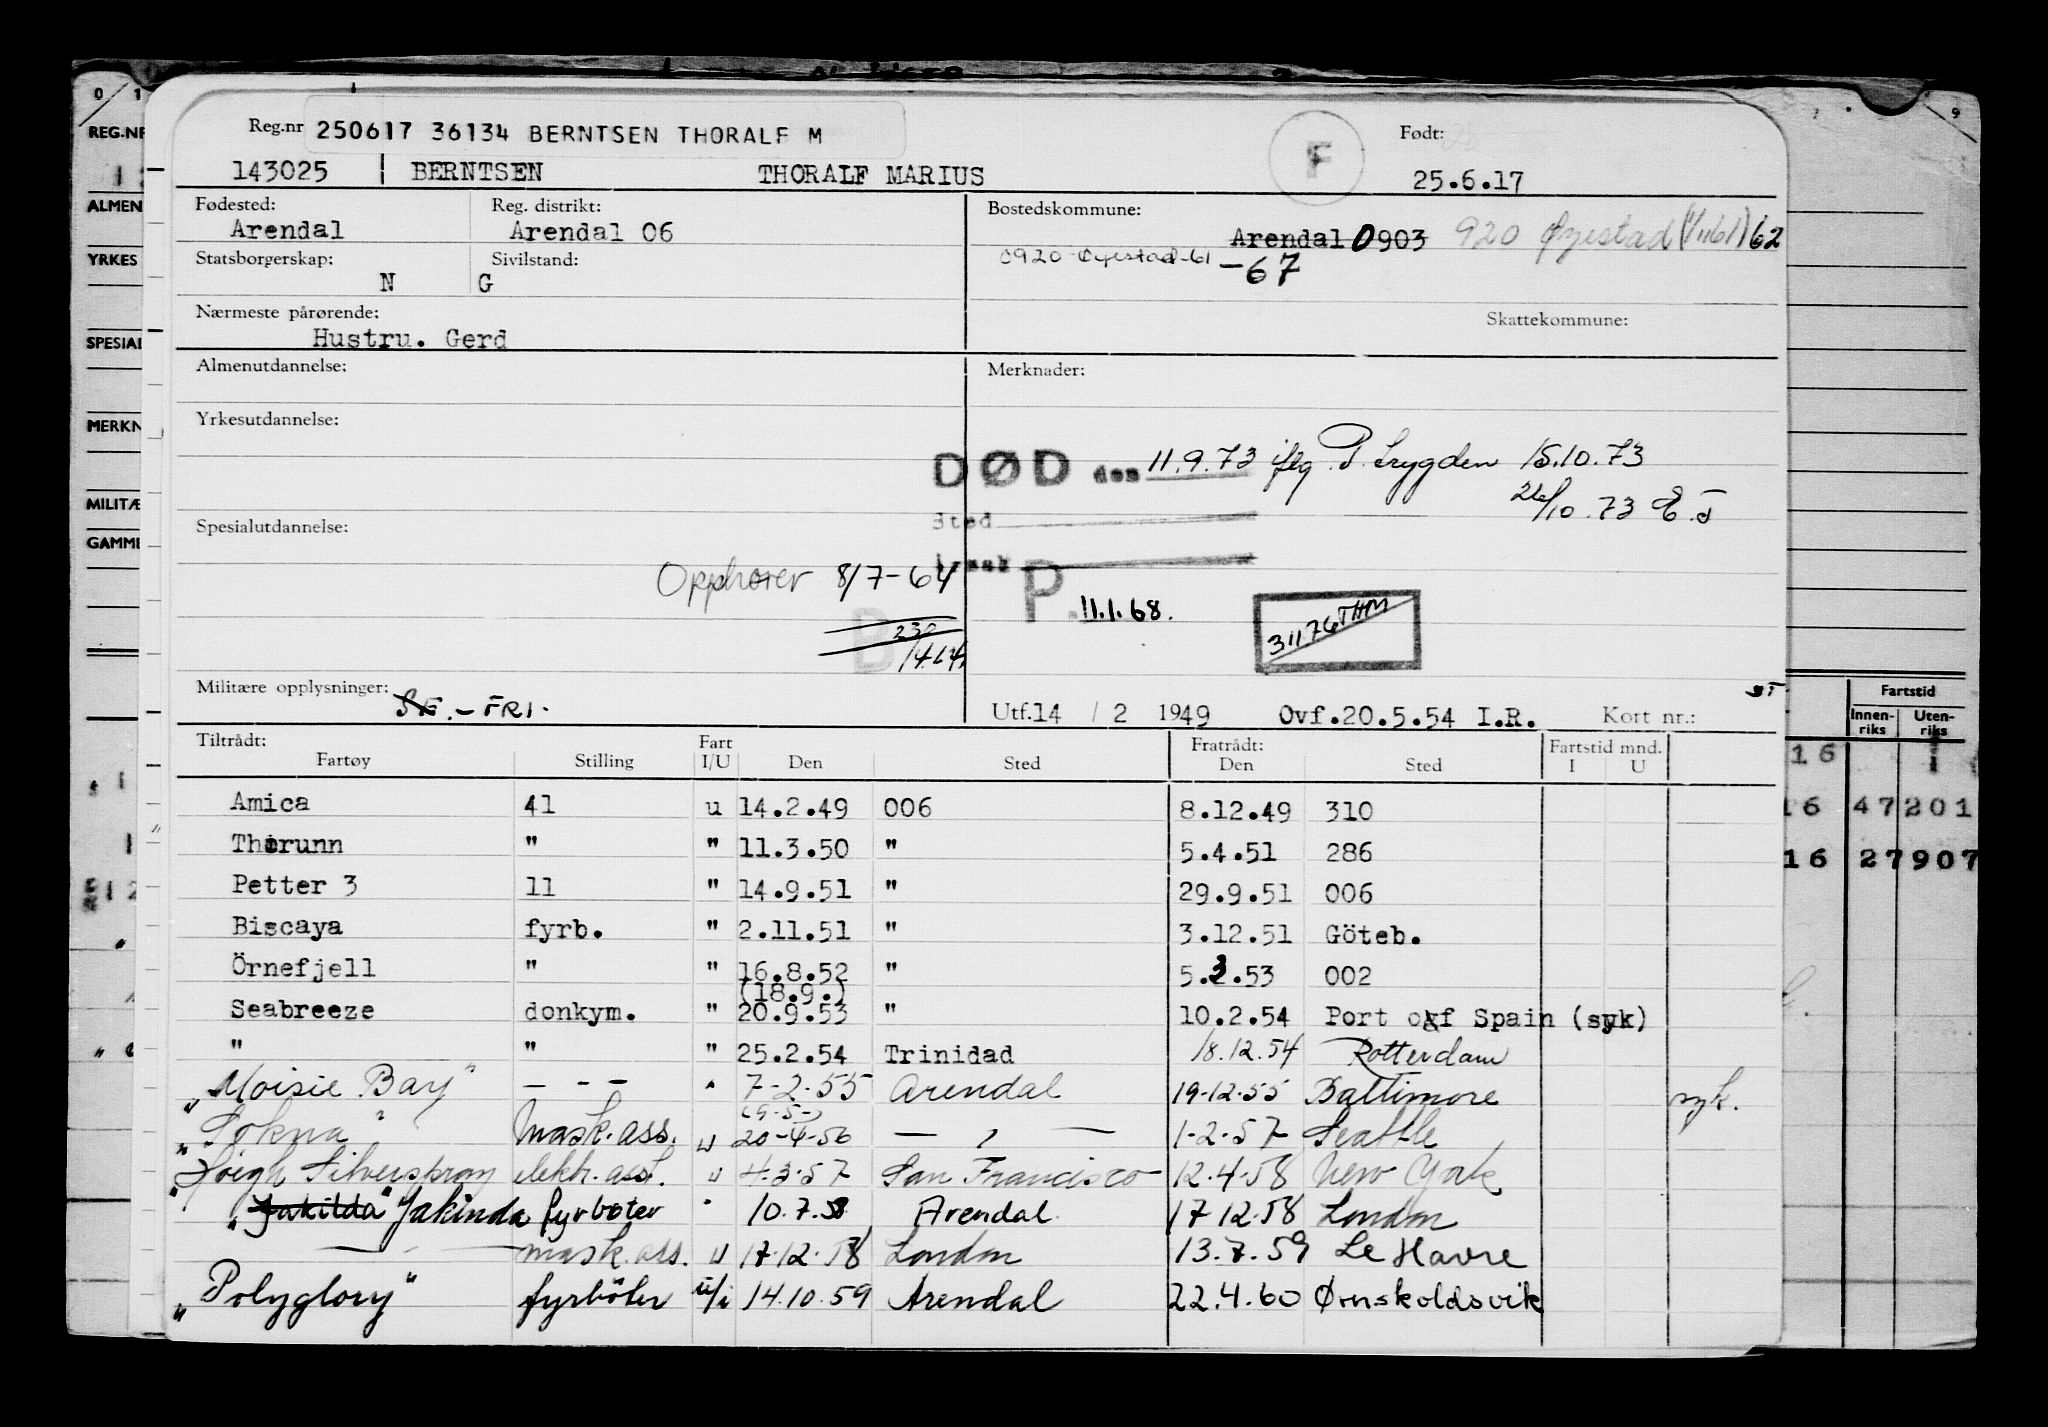 0 1 9
REG.NR
Reg.nr 250617 36134 BERNTSEN THORALF M F Født:
143025 BERNTSEN THORALF MARIUS 25.6.17
ALMEN
Fødested: Reg. distrikt: Bostedskommune:
Arendal Arendal 06 Arendal 0903 920 Øyestad (1/1161) 62
YRKES
Statsborgerskap: Sivilstand: 0920 Øyestad-61 -67
N G
Nærmeste pårørende: Skattekommune:
Hustru. Gerd
SPESIAL
Almenutdannelse: Merknader:
MERKN
Yrkesutdannelse:
DØD den 11.9.73 iflg. P. Trygden 15.10.73
MILITÆ 26/10.73 E.J
Spesialutdannelse: Sted
GAMML
Opphører 8/7-64
P. 11.1.68. 31176 THM
B 230
Militære opplysninger: SE.-FRI.
Utf.14 / 2 1949 Ovf.20.5.54 I.R. Kort nr.: ST
Fartstid
Innen-riks Uten-riks
Tiltrådt: Fart Fratrådt: Fartstid mnd.
Fartøy Stilling I/U Den Sted Den Sted I U
16
Amica 41 u 14.2.49 006 8.12.49 310
16 47 201
Thorunn " " 11.3.50 " 5.4.51 286
16 27 907
Petter 3 11 " 14.9.51 " 29.9.51 006
Biscaya fyrb. " 2.11.51 " 3.12.51 Göteb.
Örnefjell " " 16.8.52 " 5.3.53 002
(18.9.)
Seabreeze donkym. " 20.9.53 " 10.2.54 Port of Spain (syk)
" " " 25.2.54 Trinidad 18.12.54 Rotterdam
"Moisie Bay" — - — " 7-2-55 Arendal 19-12-55 Baltimore syk.
(9-5-)
"Sokna" Mask.ass. u 20-4-56 — , — 1-2-57 Seattle
"Høegh Silverspray elektr.ass. u 4-3-57 San Francisco 12.4.58 New York
"Jakilda" Jakinda fyrbøter " 10.7.58 Arendal 17.12.58 London
— " — mask.ass. u 17.12.58 London 13.7.59 Le Havre
"Polyglory" fyrbøter u/i 14.10.59 Arendal 22.4.60 Ørnskoldsvik